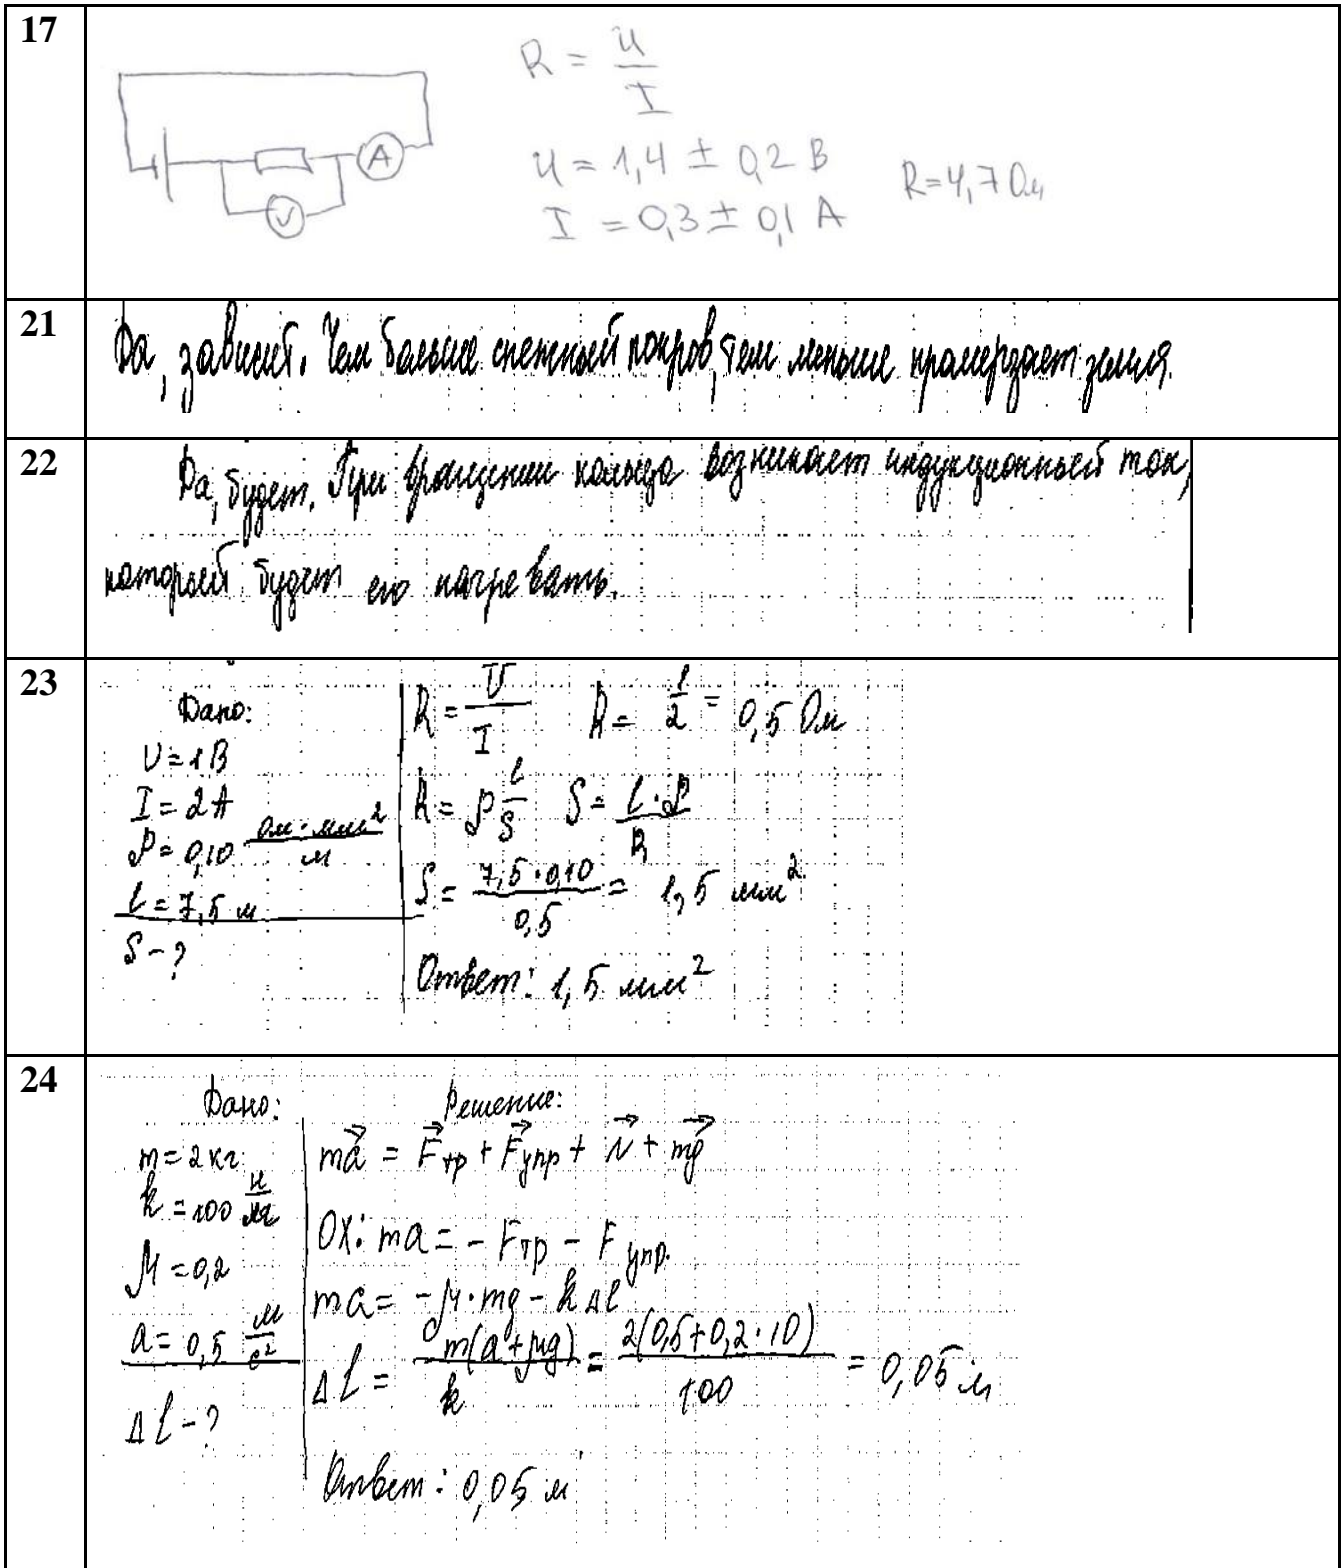 17
R = U / I
A
V
U = 1,4 ± 0,2 В
I = 0,3 ± 0,1 А
R = 4,7 Ом
21
Да, зависит. Чем больше снежный покров, тем меньше промерзает земля.
22
Да, будет. При вращении кольца возникает индукционный ток,
который будет его нагревать.
23
Дано:
U = 1 В
I = 2 А
ρ = 0,10 Ом · мм² / м
l = 7,5 м
S - ?
R = U / I R = 1 / 2 = 0,5 Ом
R = ρ l / S S = l · ρ / R
S = 7,5 · 0,10 / 0,5 = 1,5 мм²
Ответ: 1,5 мм²
24
Дано:
m = 2 кг
k = 100 Н / м
μ = 0,2
a = 0,5 м / с²
Δl - ?
Решение:
ma⃗ = F⃗тр + F⃗упр + N⃗ + mg⃗
OX: ma = - Fтр - Fупр.
ma = - μ · mg - kΔl
Δl = m(a + μg) / k = 2(0,5 + 0,2 · 10) / 100 = 0,05 м
Ответ: 0,05 м